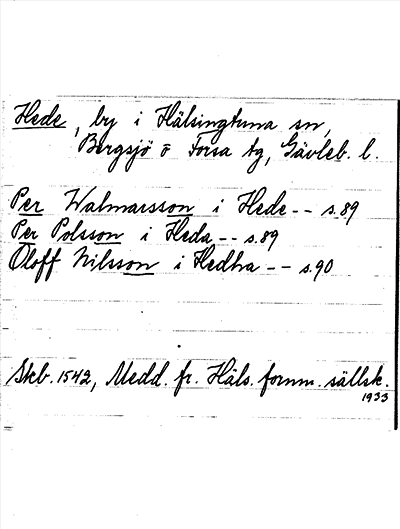 Hede, by i Hälsingtuna sn,
Bergsjö o Forsa tg, Gävleb. l.
Per Walmarsson i Hede -- s. 89
Per Polsson i Heda -- s. 89
Oloff Nilsson i Hedha -- s. 90
Skb. 1542, Medd. fr. Häls. fornm. sällsk.
1933